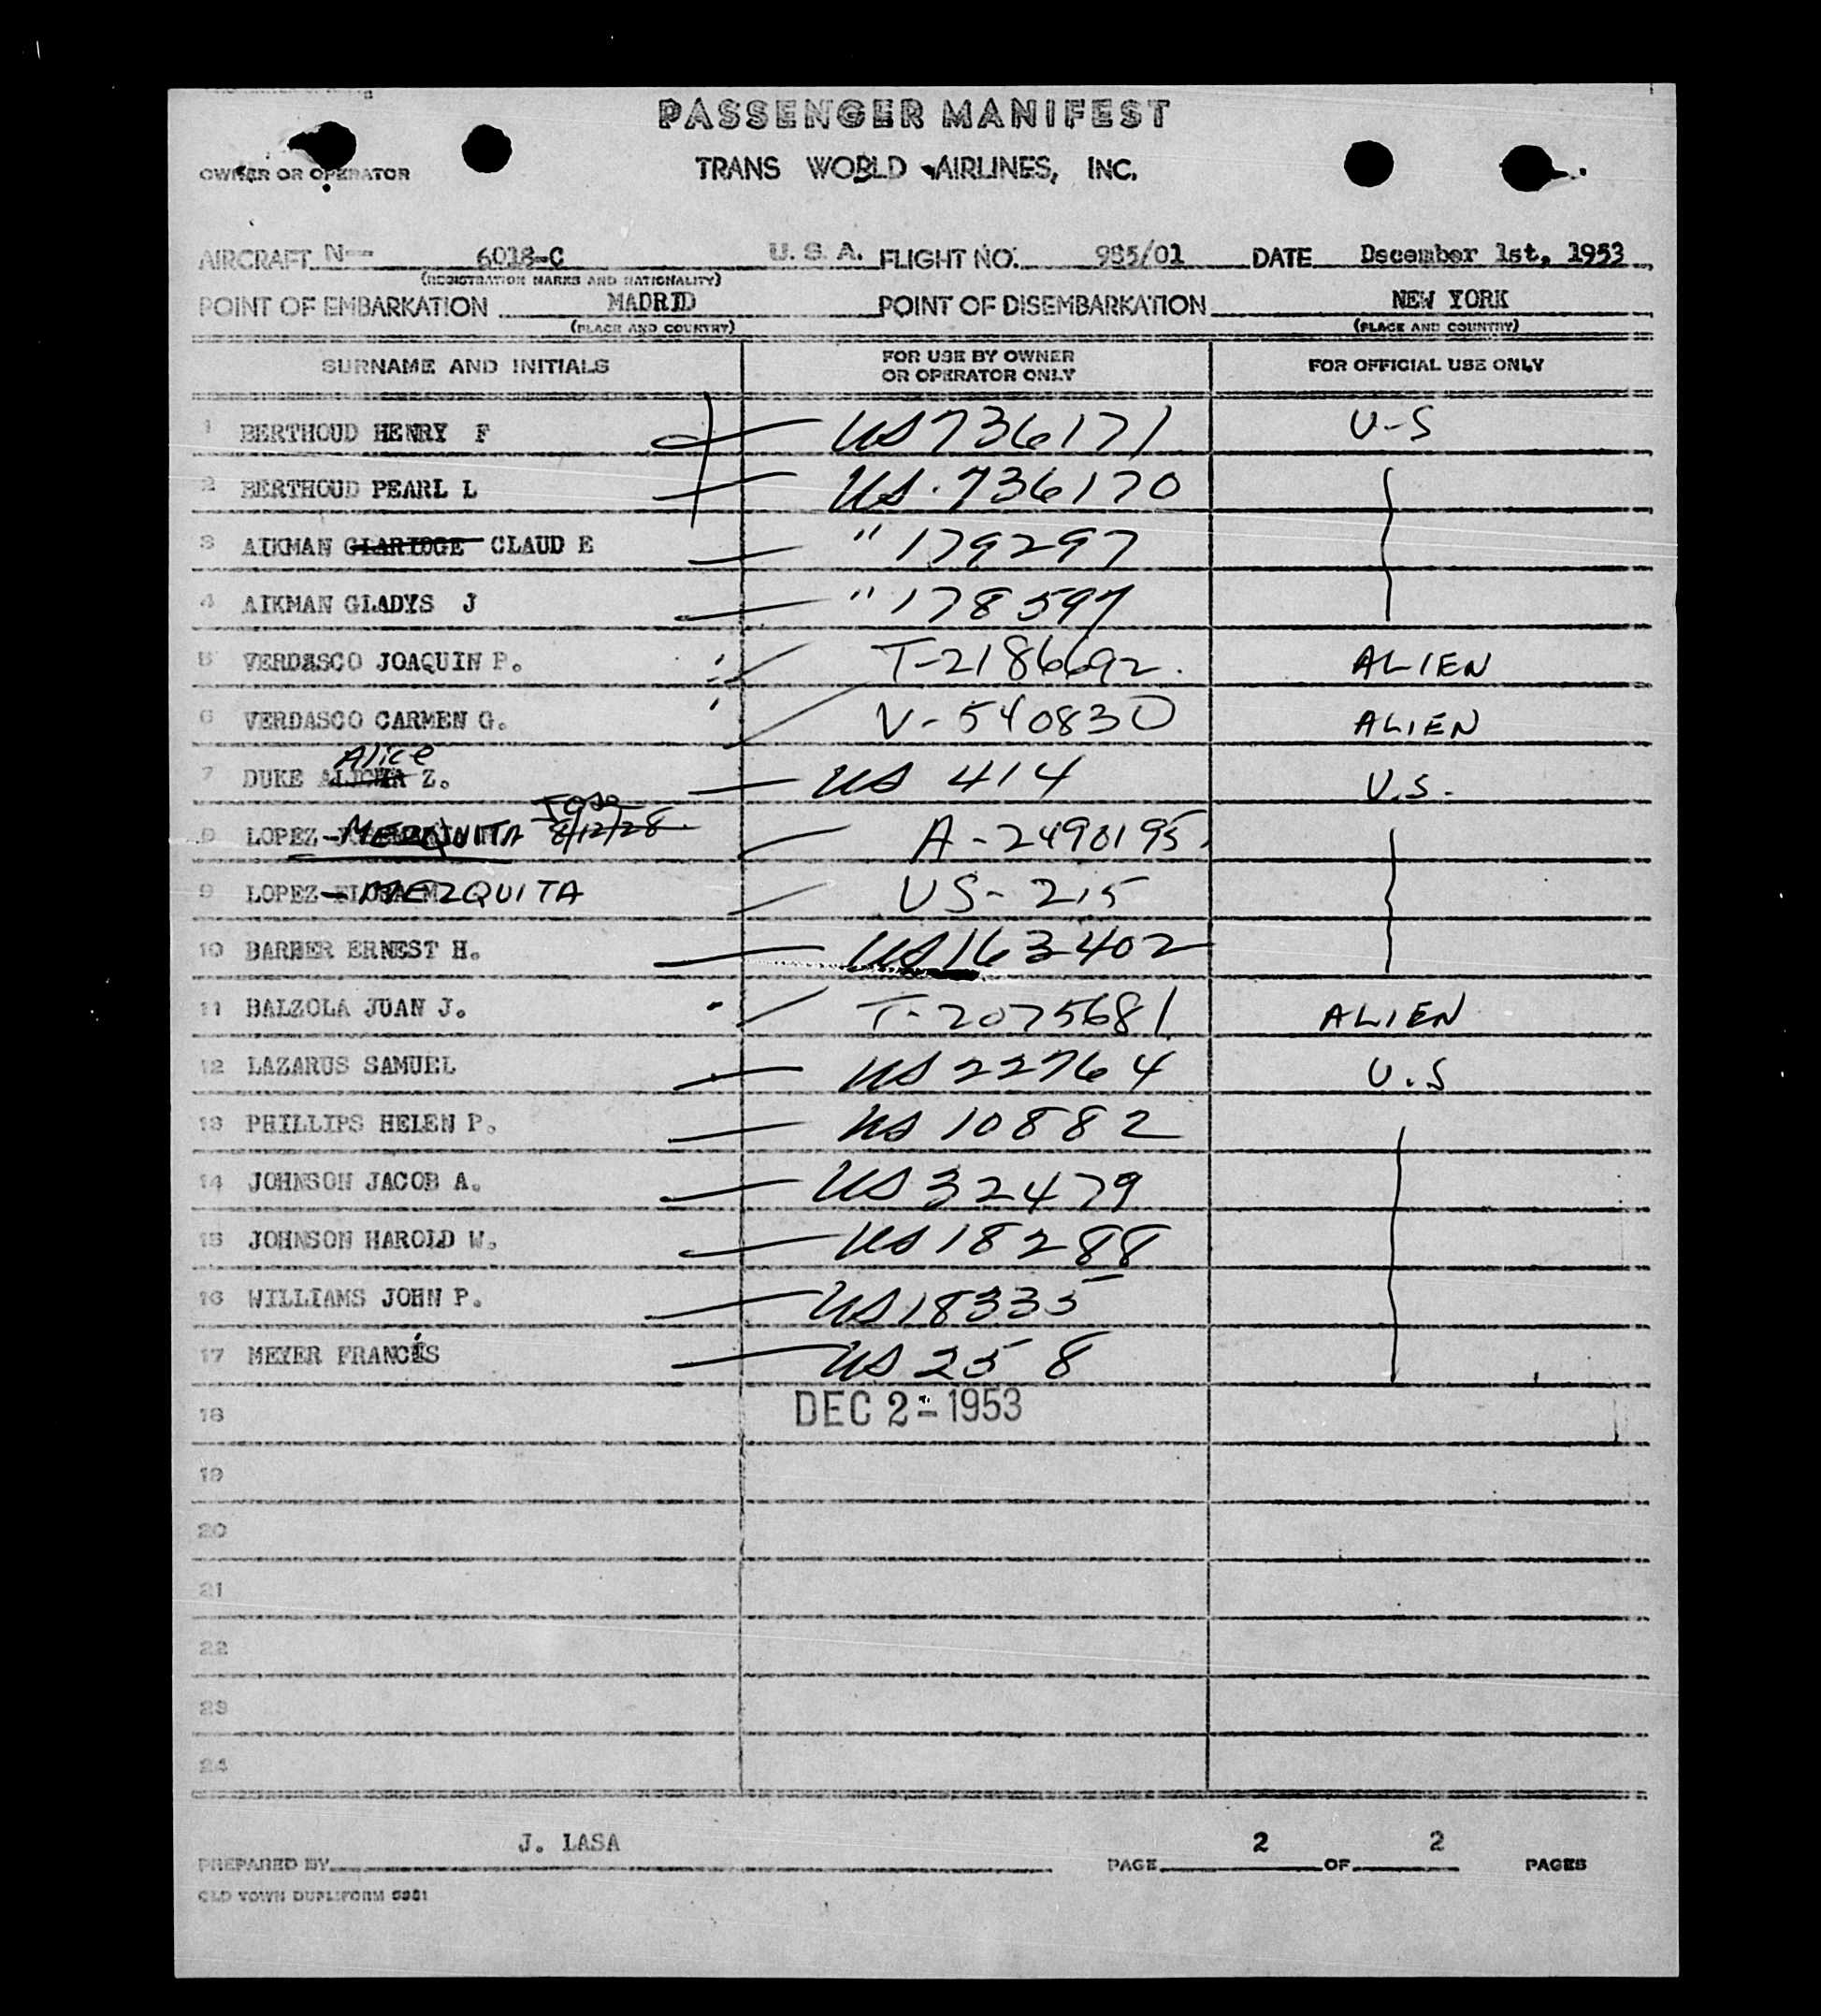 PASSENGER MANIFEST
OWNER OR OPERATOR TRANS WORLD AIRLINES, INC.
AIRCRAFT N-- 6018-C U. S. A. FLIGHT NO. 985/01 DATE December 1st, 1953
(REGISTRATION MARKS AND NATIONALITY)
POINT OF EMBARKATION MADRID POINT OF DISEMBARKATION NEW YORK
(PLACE AND COUNTRY) (PLACE AND COUNTRY)
SURNAME AND INITIALS FOR USE BY OWNER OR OPERATOR ONLY FOR OFFICIAL USE ONLY
1 BERTHOUD HENRY F US 736171 U-S
2 BERTHOUD PEARL L US. 736170
3 AIKMAN CLAUD E " 179297
4 AIKMAN GLADYS J " 178597
5 VERDASCO JOAQUIN P. T-2186692. ALIEN
6 VERDASCO CARMEN G. V-540830 ALIEN
Alice
7 DUKE Z. US 414 U.S.
Jose
8 LOPEZ-MEZQUITA 8/12/28 A-2490195.
9 LOPEZ-MEZQUITA US-215
10 BARBER ERNEST H. US 163402
11 BALZOLA JUAN J. T-2075681 ALIEN
12 LAZARUS SAMUEL US 22764 U.S
13 PHILLIPS HELEN P. US 10882
14 JOHNSON JACOB A. US 32479
15 JOHNSON HAROLD W. US 18288
16 WILLIAMS JOHN P. US 18335
17 MEYER FRANCIS US 258
18 DEC 2-1953
19
20
21
22
23
24
J. LASA 2 2
PREPARED BY PAGE OF PAGES
OLD TOWN DUPLIFORM 5981